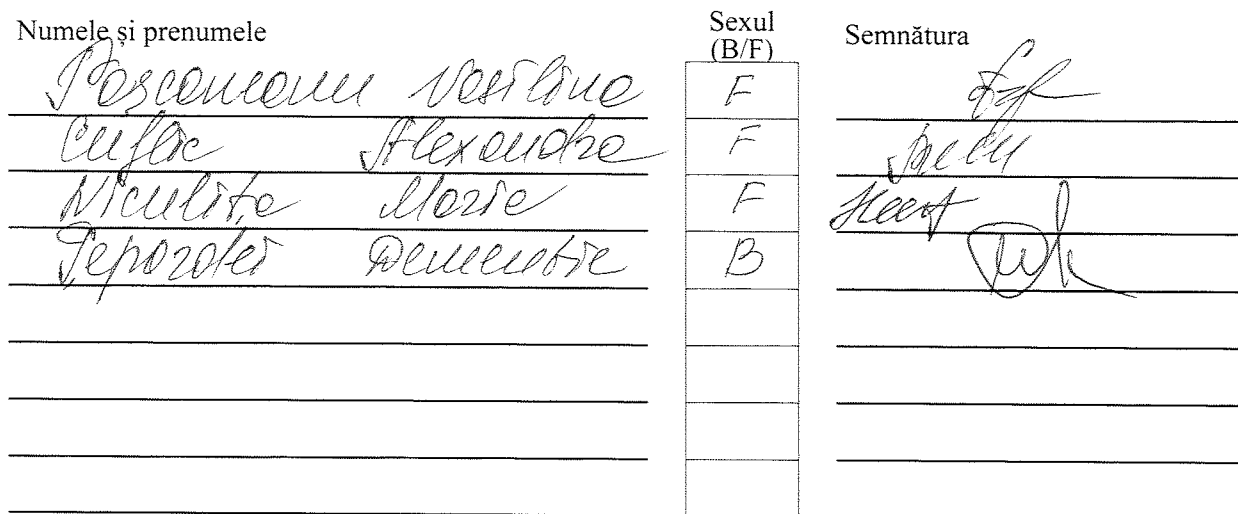 Numele și prenumele Sexul (B/F) Semnătura
Pașcaneanu Vasilina F
Cuflic Alexandra F
Niculița Maria F
Demen B